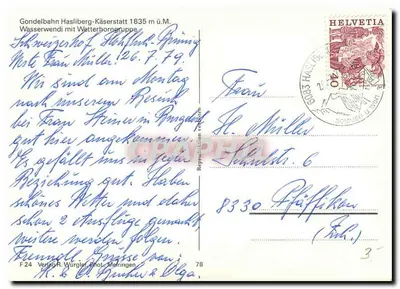 Gondelbahn Hasliberg-Käserstatt 1835 m ü.M.
Wasserwendi mit Wetterhorngruppe
HELVETIA
40
6083 HASLIBERG
Schweizerhof Brünig
Werte Frau Müller! 26.7.79.
Wir sind am Montag
nach unserem Besuch
bei Frau Steiner in Burgdorf
gut hier angekommen.
Es gefällt uns in jeder
Beziehung gut. Haben
schönes Wetter und daher
schon 2 Ausflüge gemacht,
weitere werden folgen.
Freundl. Grüsse von
H. & O. & Olga.
Frau
H. Müller
6
8330 Pfäffikon
(Zch.)
3.-
F 24 Verlag R. Würgler, Phot., Meiringen 78